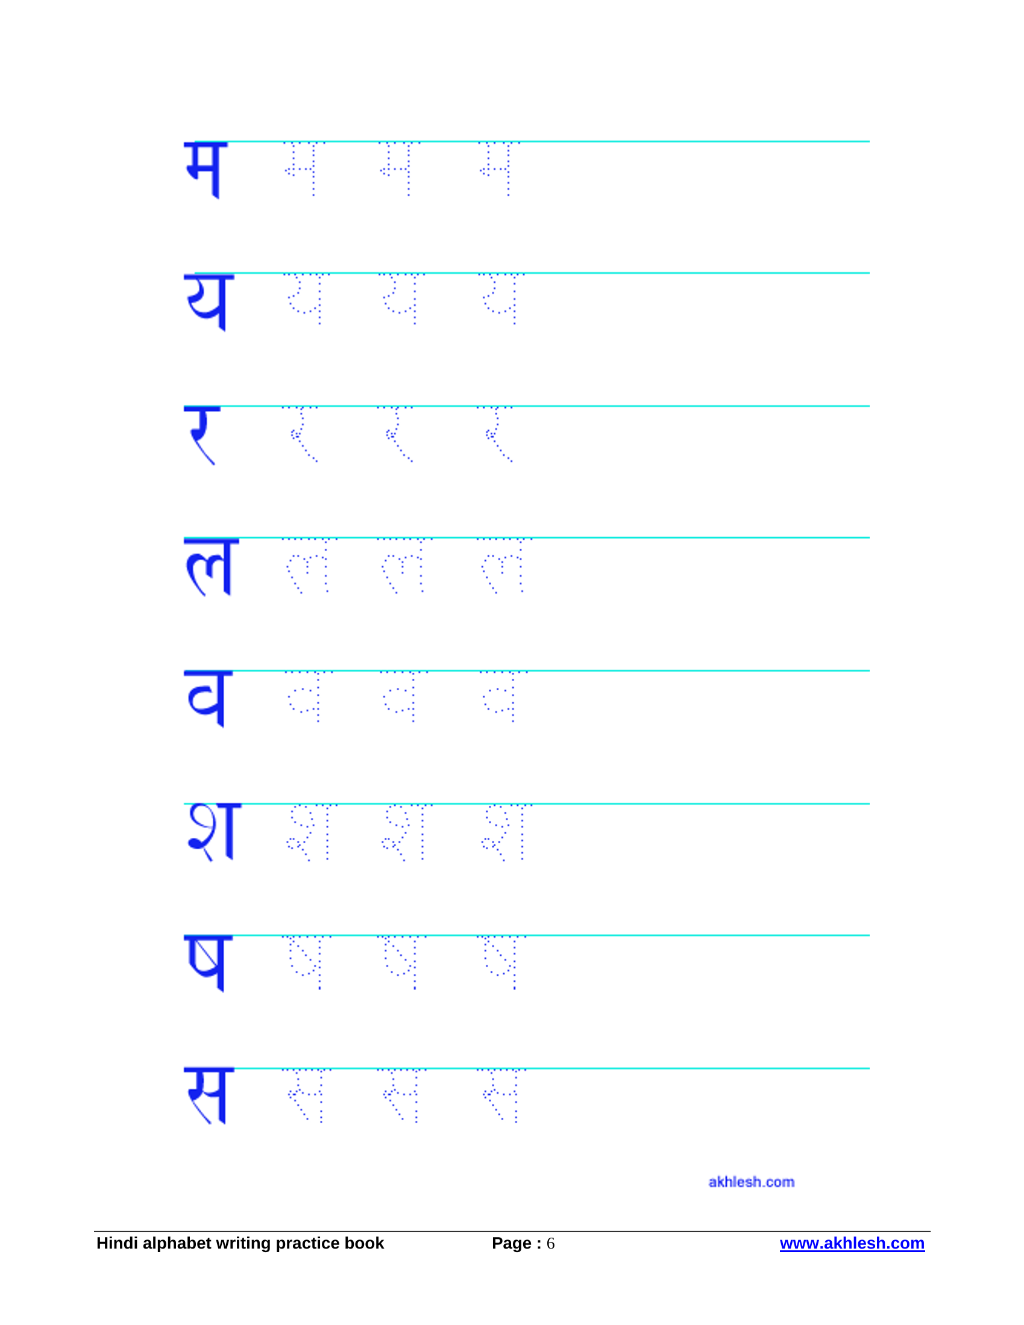 म म म म
य य य य
र र र र
ल ल ल ल
व व व व
श श श श
ष ष ष ष
स स स स
akhlesh.com
Hindi alphabet writing practice book Page : 6 www.akhlesh.com